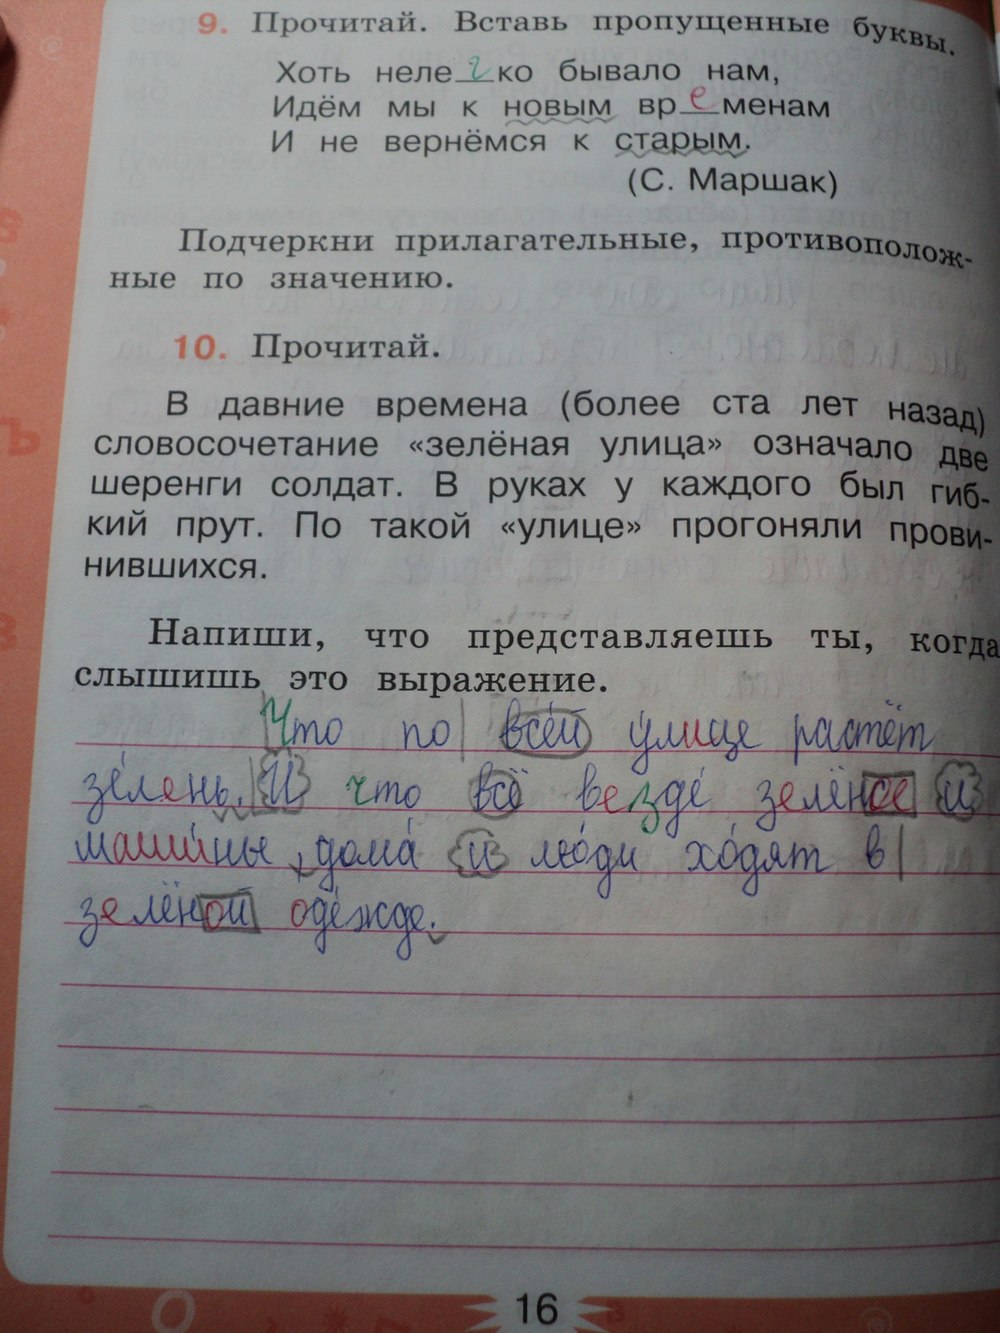 9. Прочитай. Вставь пропущенные буквы.
Хоть нелегко бывало нам,
Идём мы к новым временам
И не вернёмся к старым.
(С. Маршак)
Подчеркни прилагательные, противополож-
ные по значению.
10. Прочитай.
В давние времена (более ста лет назад)
словосочетание «зелёная улица» означало две
шеренги солдат. В руках у каждого был гиб-
кий прут. По такой «улице» прогоняли прови-
нившихся.
Напиши, что представляешь ты, когда
слышишь это выражение.
Что по всей улице растёт
зелень. И что всё везде зелёное и
машины, дома и люди ходят в
зелёной одежде.
16